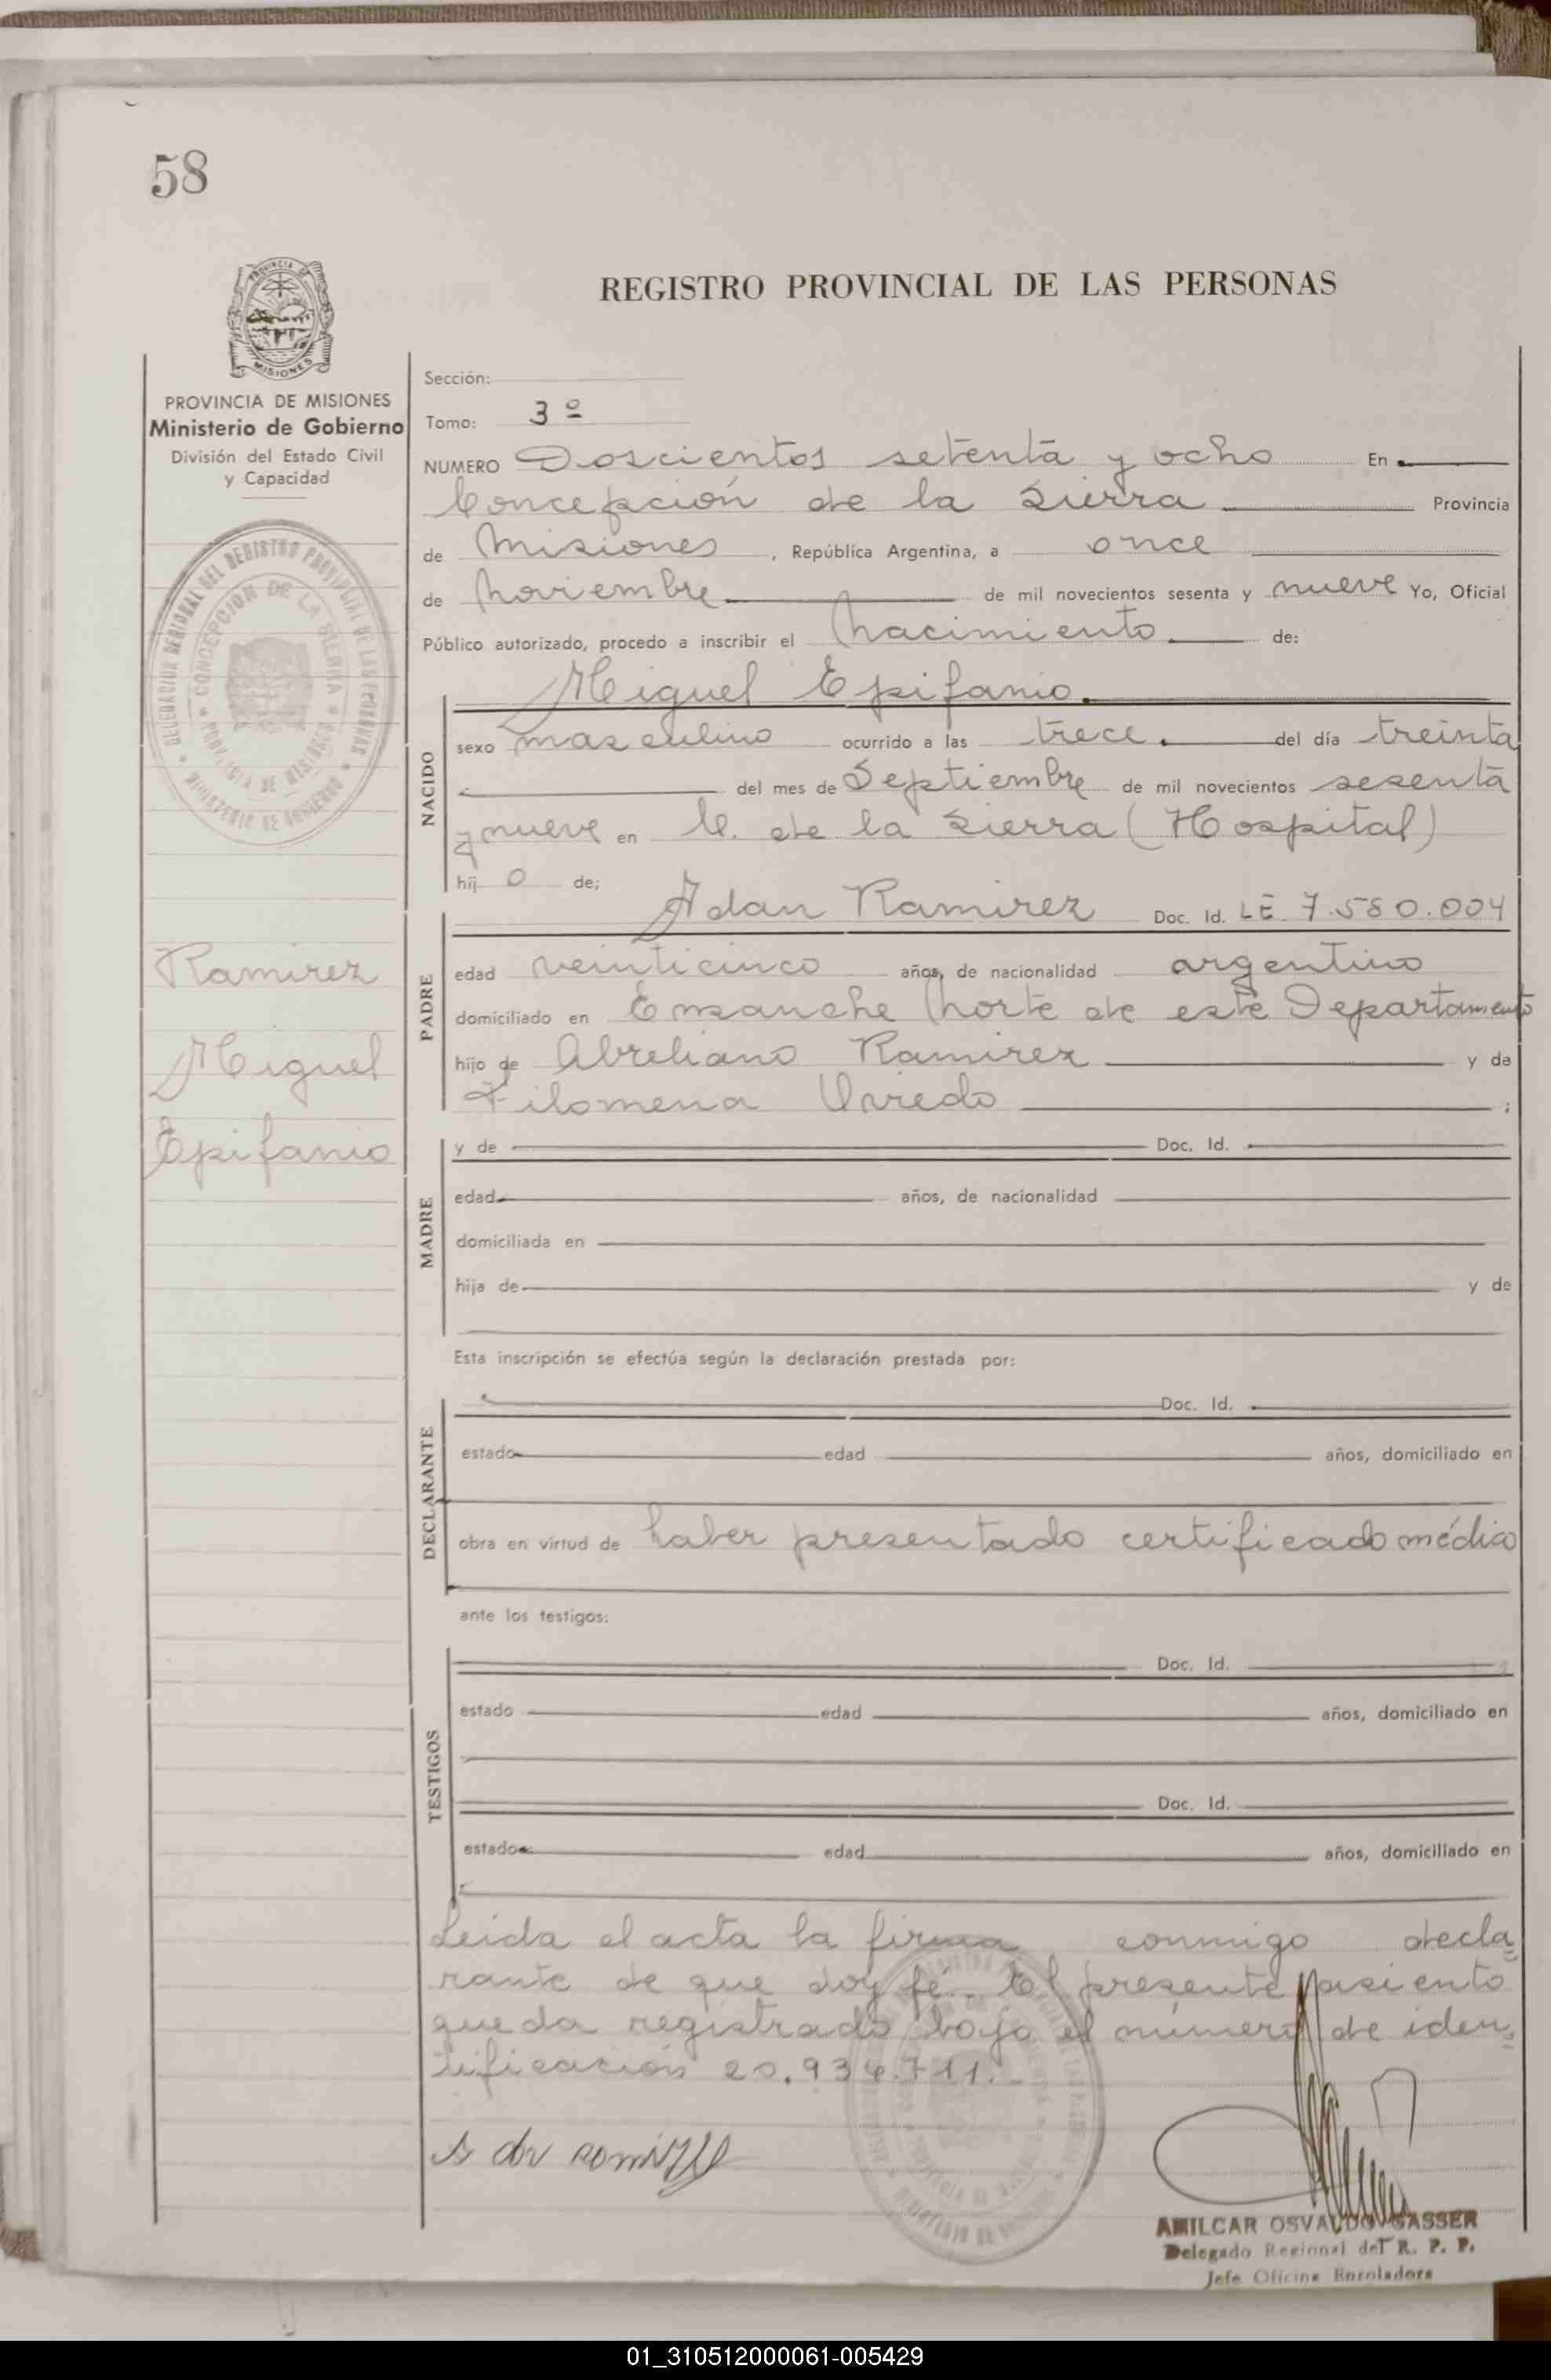 58
REGISTRO PROVINCIAL DE LAS PERSONAS
PROVINCIA DE MISIONES
Ministerio de Gobierno
División del Estado Civil
y Capacidad
DELEGACION REGIONAL DEL REGISTRO PROVINCIAL DE LAS PERSONAS
CONCEPCION DE LA SIERRA
PROVINCIA DE MISIONES
MINISTERIO DE GOBIERNO
Ramirez
Miguel
Epifanio
Sección:
Tomo: 3º
NUMERO Doscientos setenta y ocho En
Concepción de la Sierra Provincia
de Misiones, República Argentina, a once
de noviembre de mil novecientos sesenta y nueve Yo, Oficial
Público autorizado, procedo a inscribir el nacimiento de:
NACIDO
Miguel Epifanio.
sexo masculino ocurrido a las trece. del día treinta
del mes de Septiembre de mil novecientos sesenta
y nueve en C. de la Sierra (Hospital)
hij o de;
PADRE
Adan Ramirez Doc. Id. LE. 7.580.004
edad veinticinco años, de nacionalidad argentino
domiciliado en Ensanche norte de este Departamento
hijo de Abreliano Ramirez y de
Filomena Oviedo ;
MADRE
y de Doc. Id.
edad años, de nacionalidad
domiciliada en
hija de y de
Esta inscripción se efectúa según la declaración prestada por:
DECLARANTE
Doc. Id.
estado edad años, domiciliado en
obra en virtud de haber presentado certificado médico
ante los testigos:
TESTIGOS
Doc. Id.
estado edad años, domiciliado en
Doc. Id.
estado edad años, domiciliado en
Leída el acta la firma conmigo decla=
rante de que doy fé.- El presente asiento
queda registrado bajo el número de iden=
tificación 20.934.711.-
AMILCAR OSVALDO GASSER
Delegado Regional del R. P. P.
Jefe Oficina Enroladora
01_310512000061-005429